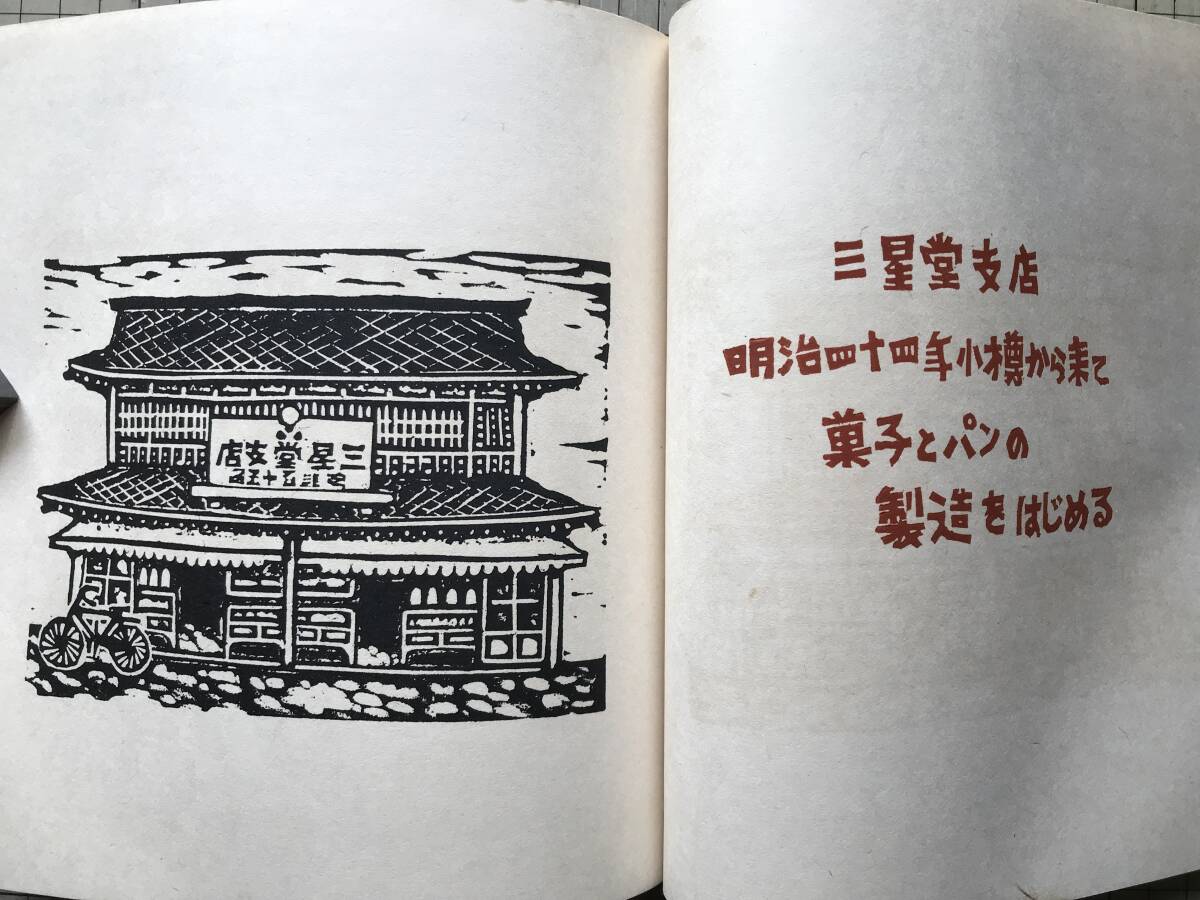 三星堂支店
明治四十四年小樽から来て
菓子とパンの
製造をはじめる
三星堂支店